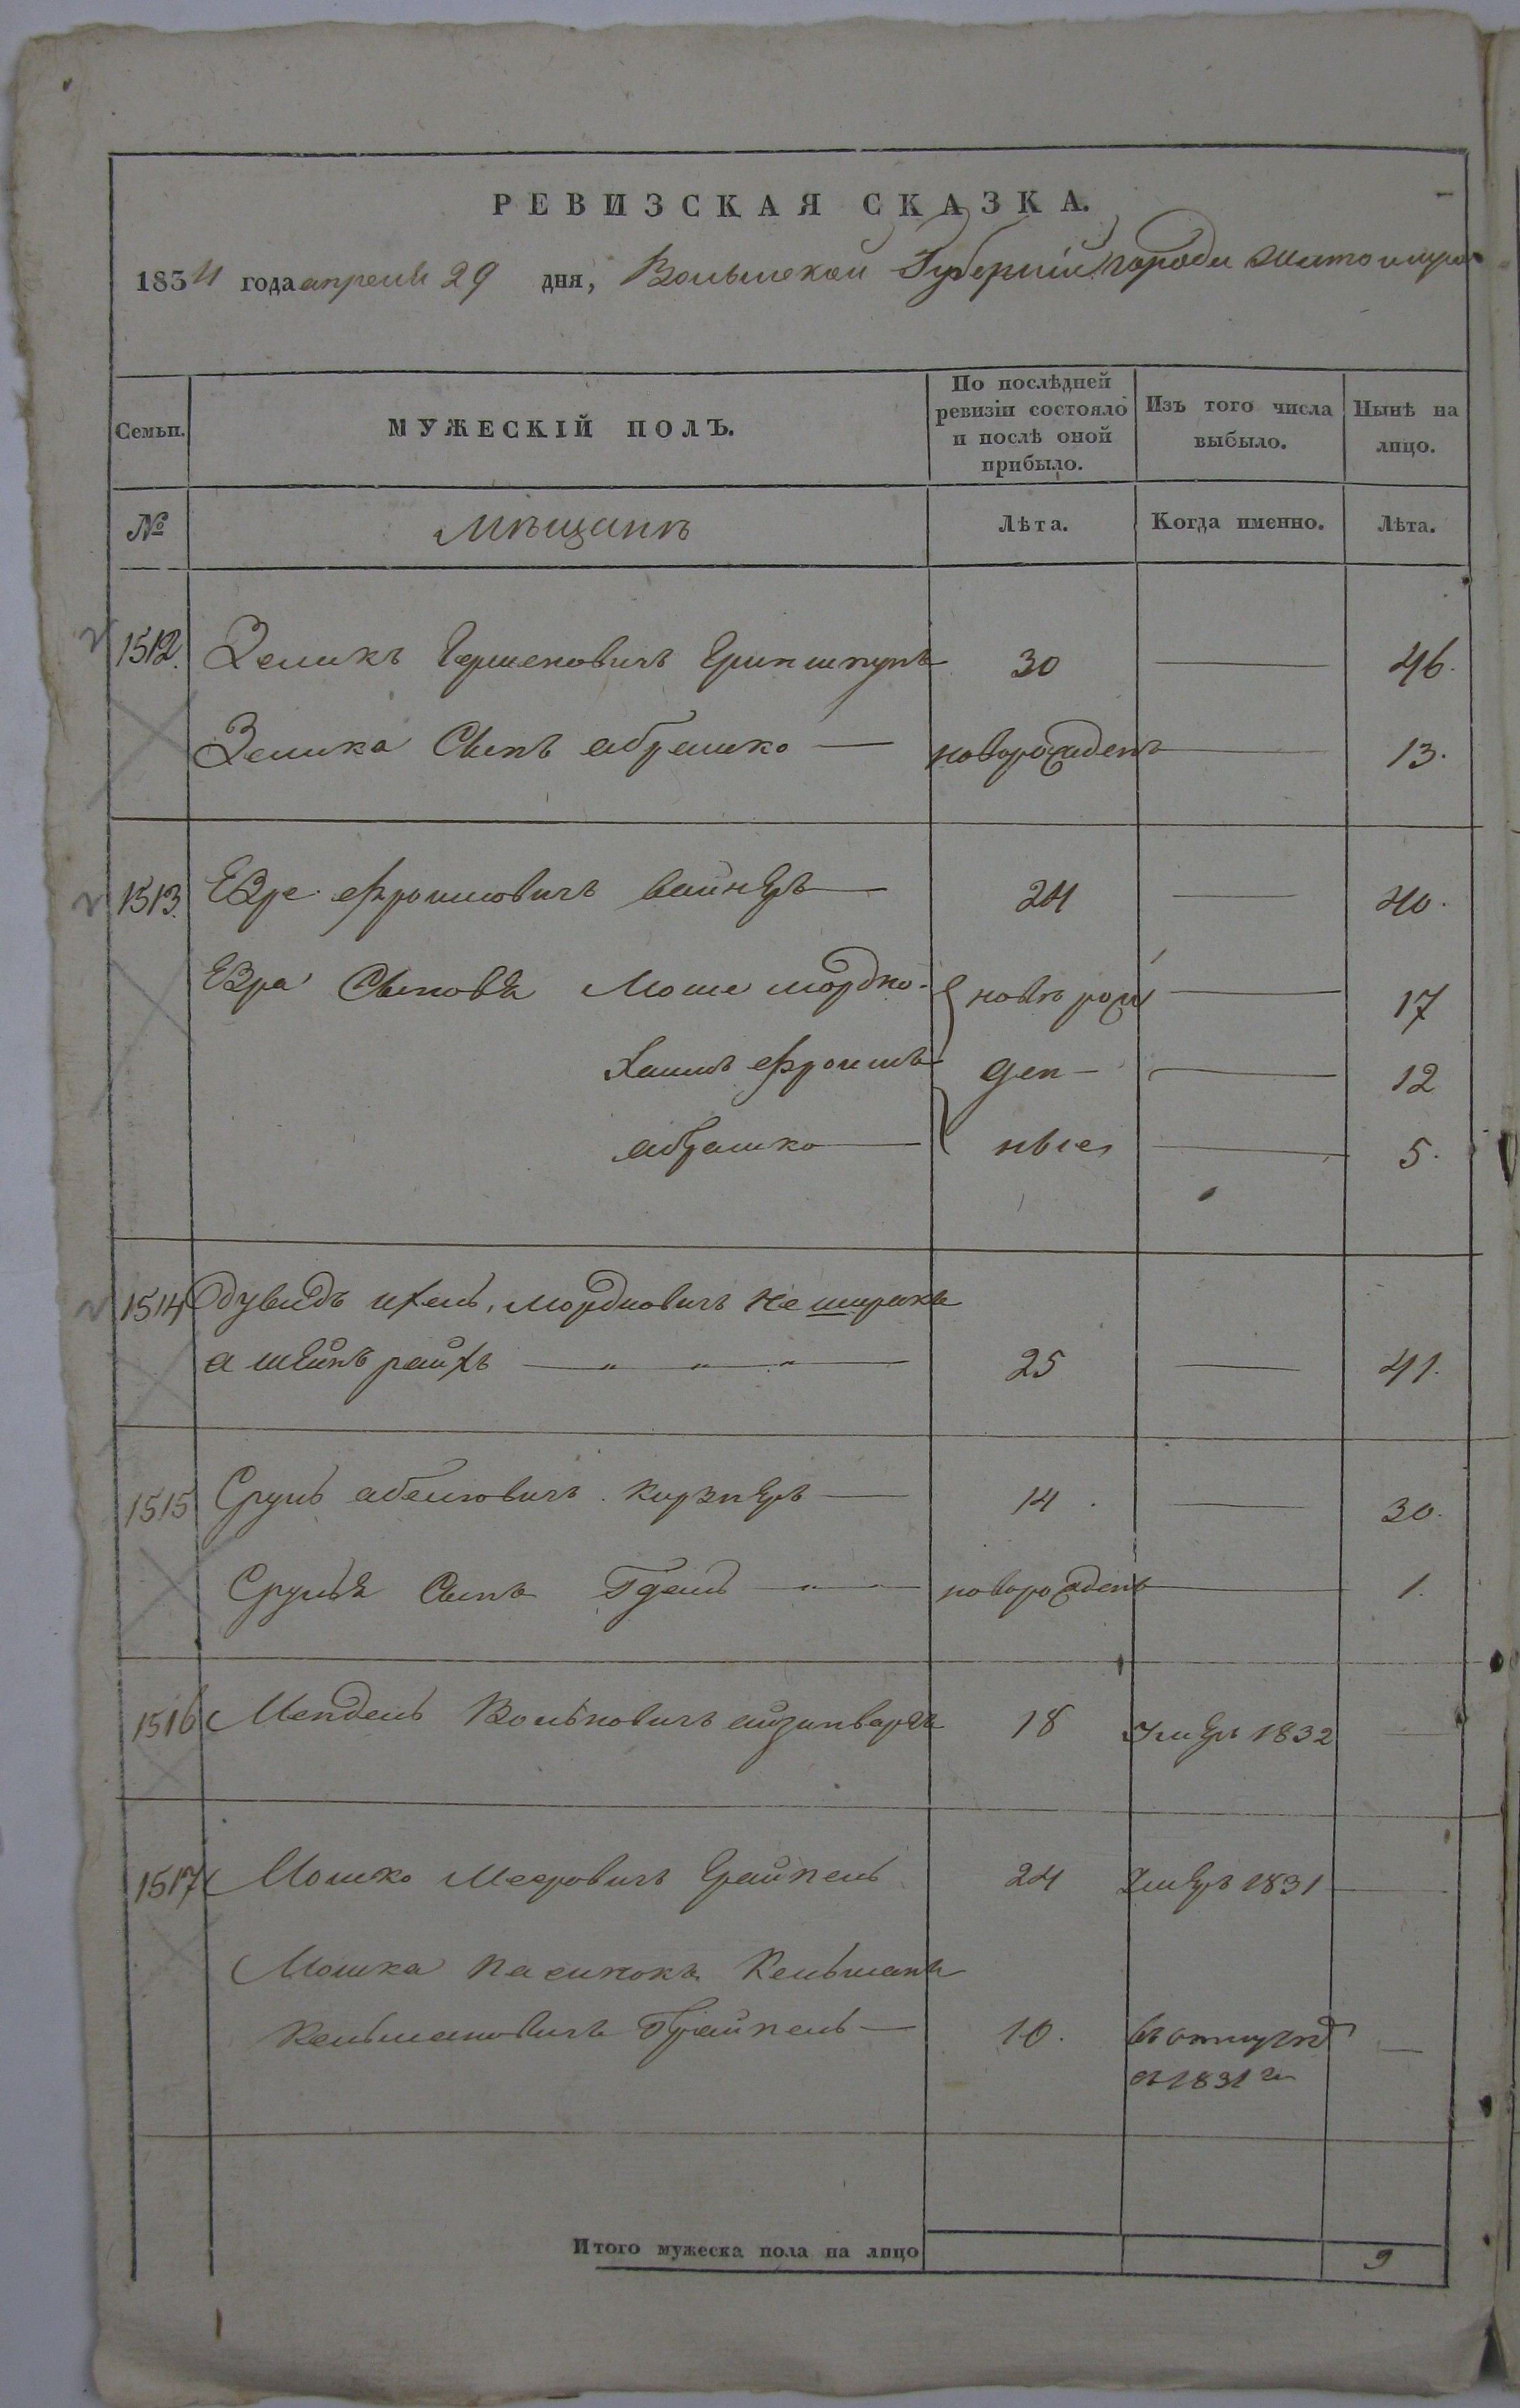 РЕВИЗСКАЯ СКАЗКА.
1834 года апреля 29 дня, Волынской Губерніи города Житомира
Семьи. МУЖЕСКІЙ ПОЛЪ. По послѣдней ревизіи состояло и послѣ оной прибыло. Изъ того числа выбыло. Нынѣ на лицо.
№ Мѣщанъ Лѣта. Когда именно. Лѣта.
1512. Зеликъ Гершковичъ 30 — 46.
Зелика Сынъ абрашко — новорожденъ — 13.
1513. Езре фроимовичъ вайнеръ — 24 — 40.
Езра Сыновя Моше мордко новорож — 17
Хаимъ фроимъ ден — 12
абрашко — ные — 5.
1514 дувидъ ихель, мордковичъ не ширака
а шейнъ райхъ — 25 — 41.
1515 Срулъ абелиовичъ кирзнеръ — 14. — 30.
Сруля Сынъ — новорожденъ — 1.
1516 Мендель Волковичъ айзинваргъ 18 Умеръ 1832 —
1517 Мошко Мееровичъ Грайпель 24 Умеръ 1831 —
Мошка пасинокъ Кельманъ
Кельмановичъ Грайпель — 10. въ отлучкѣ —
съ 1831 г
Итого мужеска пола на лицо 9